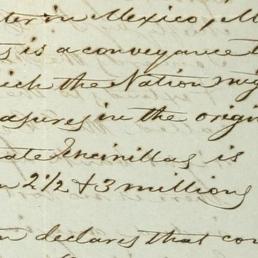 ter in Mexico, M
is a conveyance t
ich the Nation mig
asures in the origin
ate Encinillas is
n 2½ & 3 millions
n declares that con